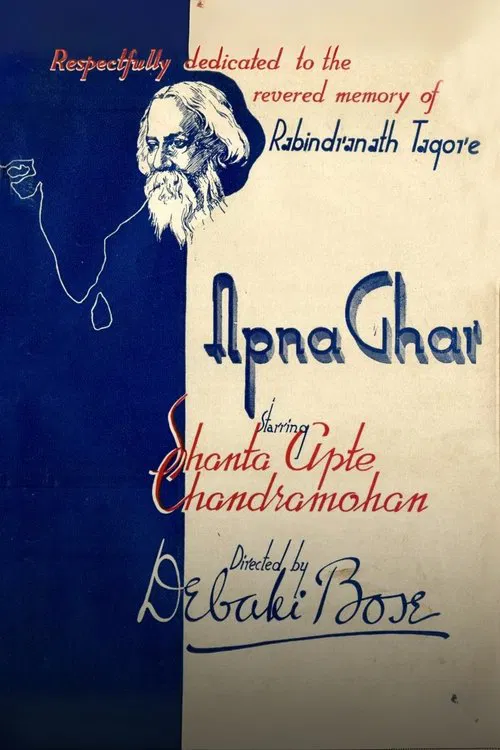 Respectfully dedicated to the
revered memory of
Rabindranath Tagore
Apna Ghar
Starring
Shanta Apte
Chandramohan
Directed by
Debaki Bose